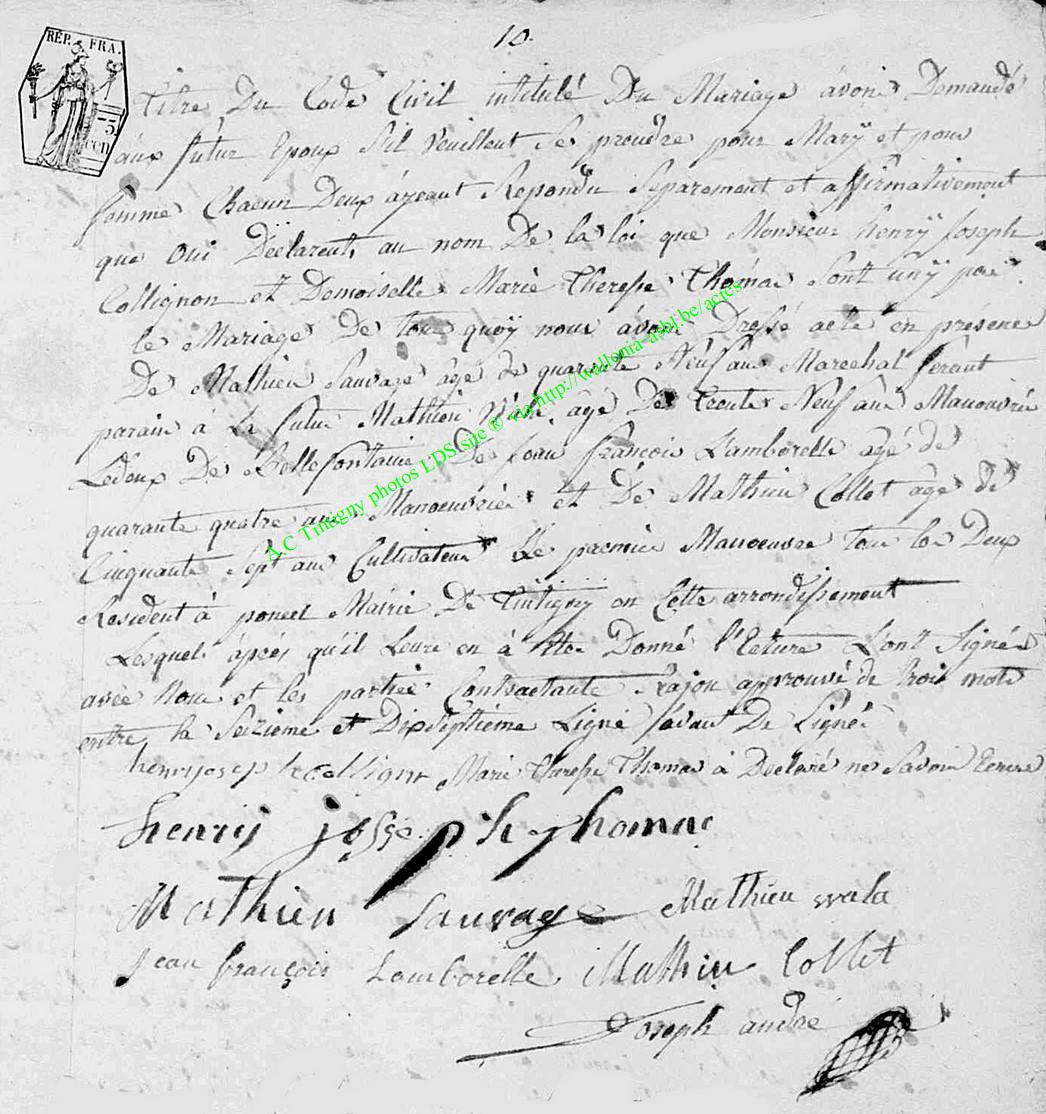 10
RÉP. FRA.
Titre Du Code Civil intitulé Du Mariage avon Demandé
aux futur Epoux S'il Veuillent Se prendre pour Mary et pour
femme Chacun Deux áyeant Repondu Separement et affirmativement
que oui Déclarent, au nom De la loi que Monsieur henrÿ Joseph
Collignon et Demoiselle Marie Therese Thomas Sont unÿ par
le Mariage De tou quoÿ nous avons Dressé acte en presence
De Mathieu Sauvage âge de quarante Neuf ans Marechal ferant
parain à la futur Mathieu âgé De Trente Neuf ans Manouvrié
Ledeux De Bellefontaine De Jean francois Lamborelle age de
quarante quatre ans Manoeuvrier et De Mathieu Collet age de
Cinquante Sept ans Cultivateur Le premier Manoeuvre tou les Deux
Resident à poncel Mairie De Tintigny en Cette arrondissement
Lesquels áprés qu'il Leure en à Eté Donné l'Ecture L'ont Signé
avec Nous et les partie Contractante Rajou approuvé de trois mots
entre la Seizieme et Dixseptième Ligne avant De Signé
henrij josep h collignr Marie Therese Thomas à Declaré ne Savoir Ecrire
henrij joseph thomas
Mathieu Sauvage Mathieu wala
Jean françois Lamborelle Mathieu Collet
Joseph andré
A.C Tintigny photos LDS (site ® via http://wallonia-asbl.be/actes